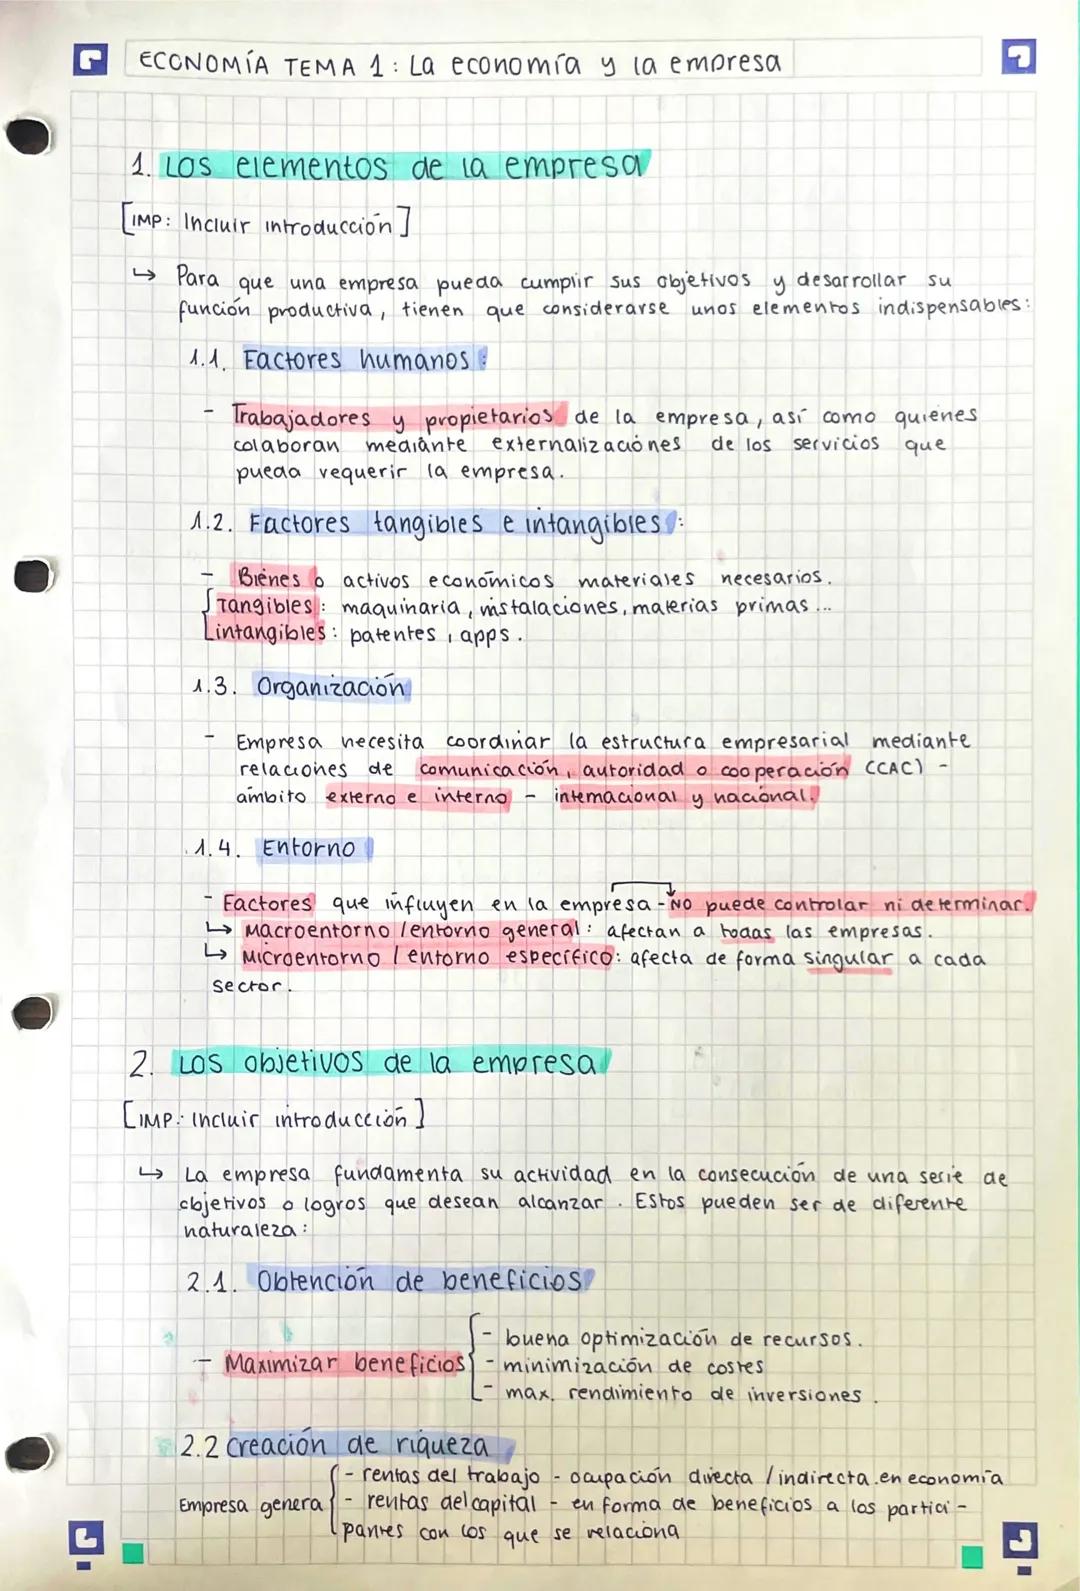 ECONOMÍA TEMA 1: La economía y la empresa
1. Los elementos de la empresa
[IMP: Incluir introducción]
↳ Para que una empresa pueda cumplir sus objetivos y desarrollar su
función productiva, tienen que considerarse unos elementos indispensables:
1.1. Factores humanos:
- Trabajadores y propietarios de la empresa, así como quienes
colaboran mediante externalizaciones de los servicios que
pueda requerir la empresa.
1.2. Factores tangibles e intangibles:
- Bienes o activos económicos materiales necesarios.
Tangibles: maquinaria, instalaciones, materias primas...
intangibles: patentes, apps.
1.3. Organización
- Empresa necesita coordinar la estructura empresarial mediante
relaciones de comunicación, autoridad o cooperación (CAC) -
ámbito externo e interno - internacional y nacional.
1.4. Entorno
- Factores que influyen en la empresa - NO puede controlar ni determinar.
↳ Macroentorno / entorno general: afectan a todas las empresas.
↳ Microentorno / entorno específico: afecta de forma singular a cada
sector.
2. Los objetivos de la empresa
[IMP: Incluir introducción]
↳ La empresa fundamenta su actividad en la consecución de una serie de
objetivos o logros que desean alcanzar. Estos pueden ser de diferente
naturaleza:
2.1. Obtención de beneficios
- buena optimización de recursos.
- Maximizar beneficios - minimización de costes
- max. rendimiento de inversiones.
2.2 Creación de riqueza
- rentas del trabajo - ocupación directa / indirecta en economía
Empresa genera - rentas del capital - en forma de beneficios a los partici-
pantes con los que se relaciona